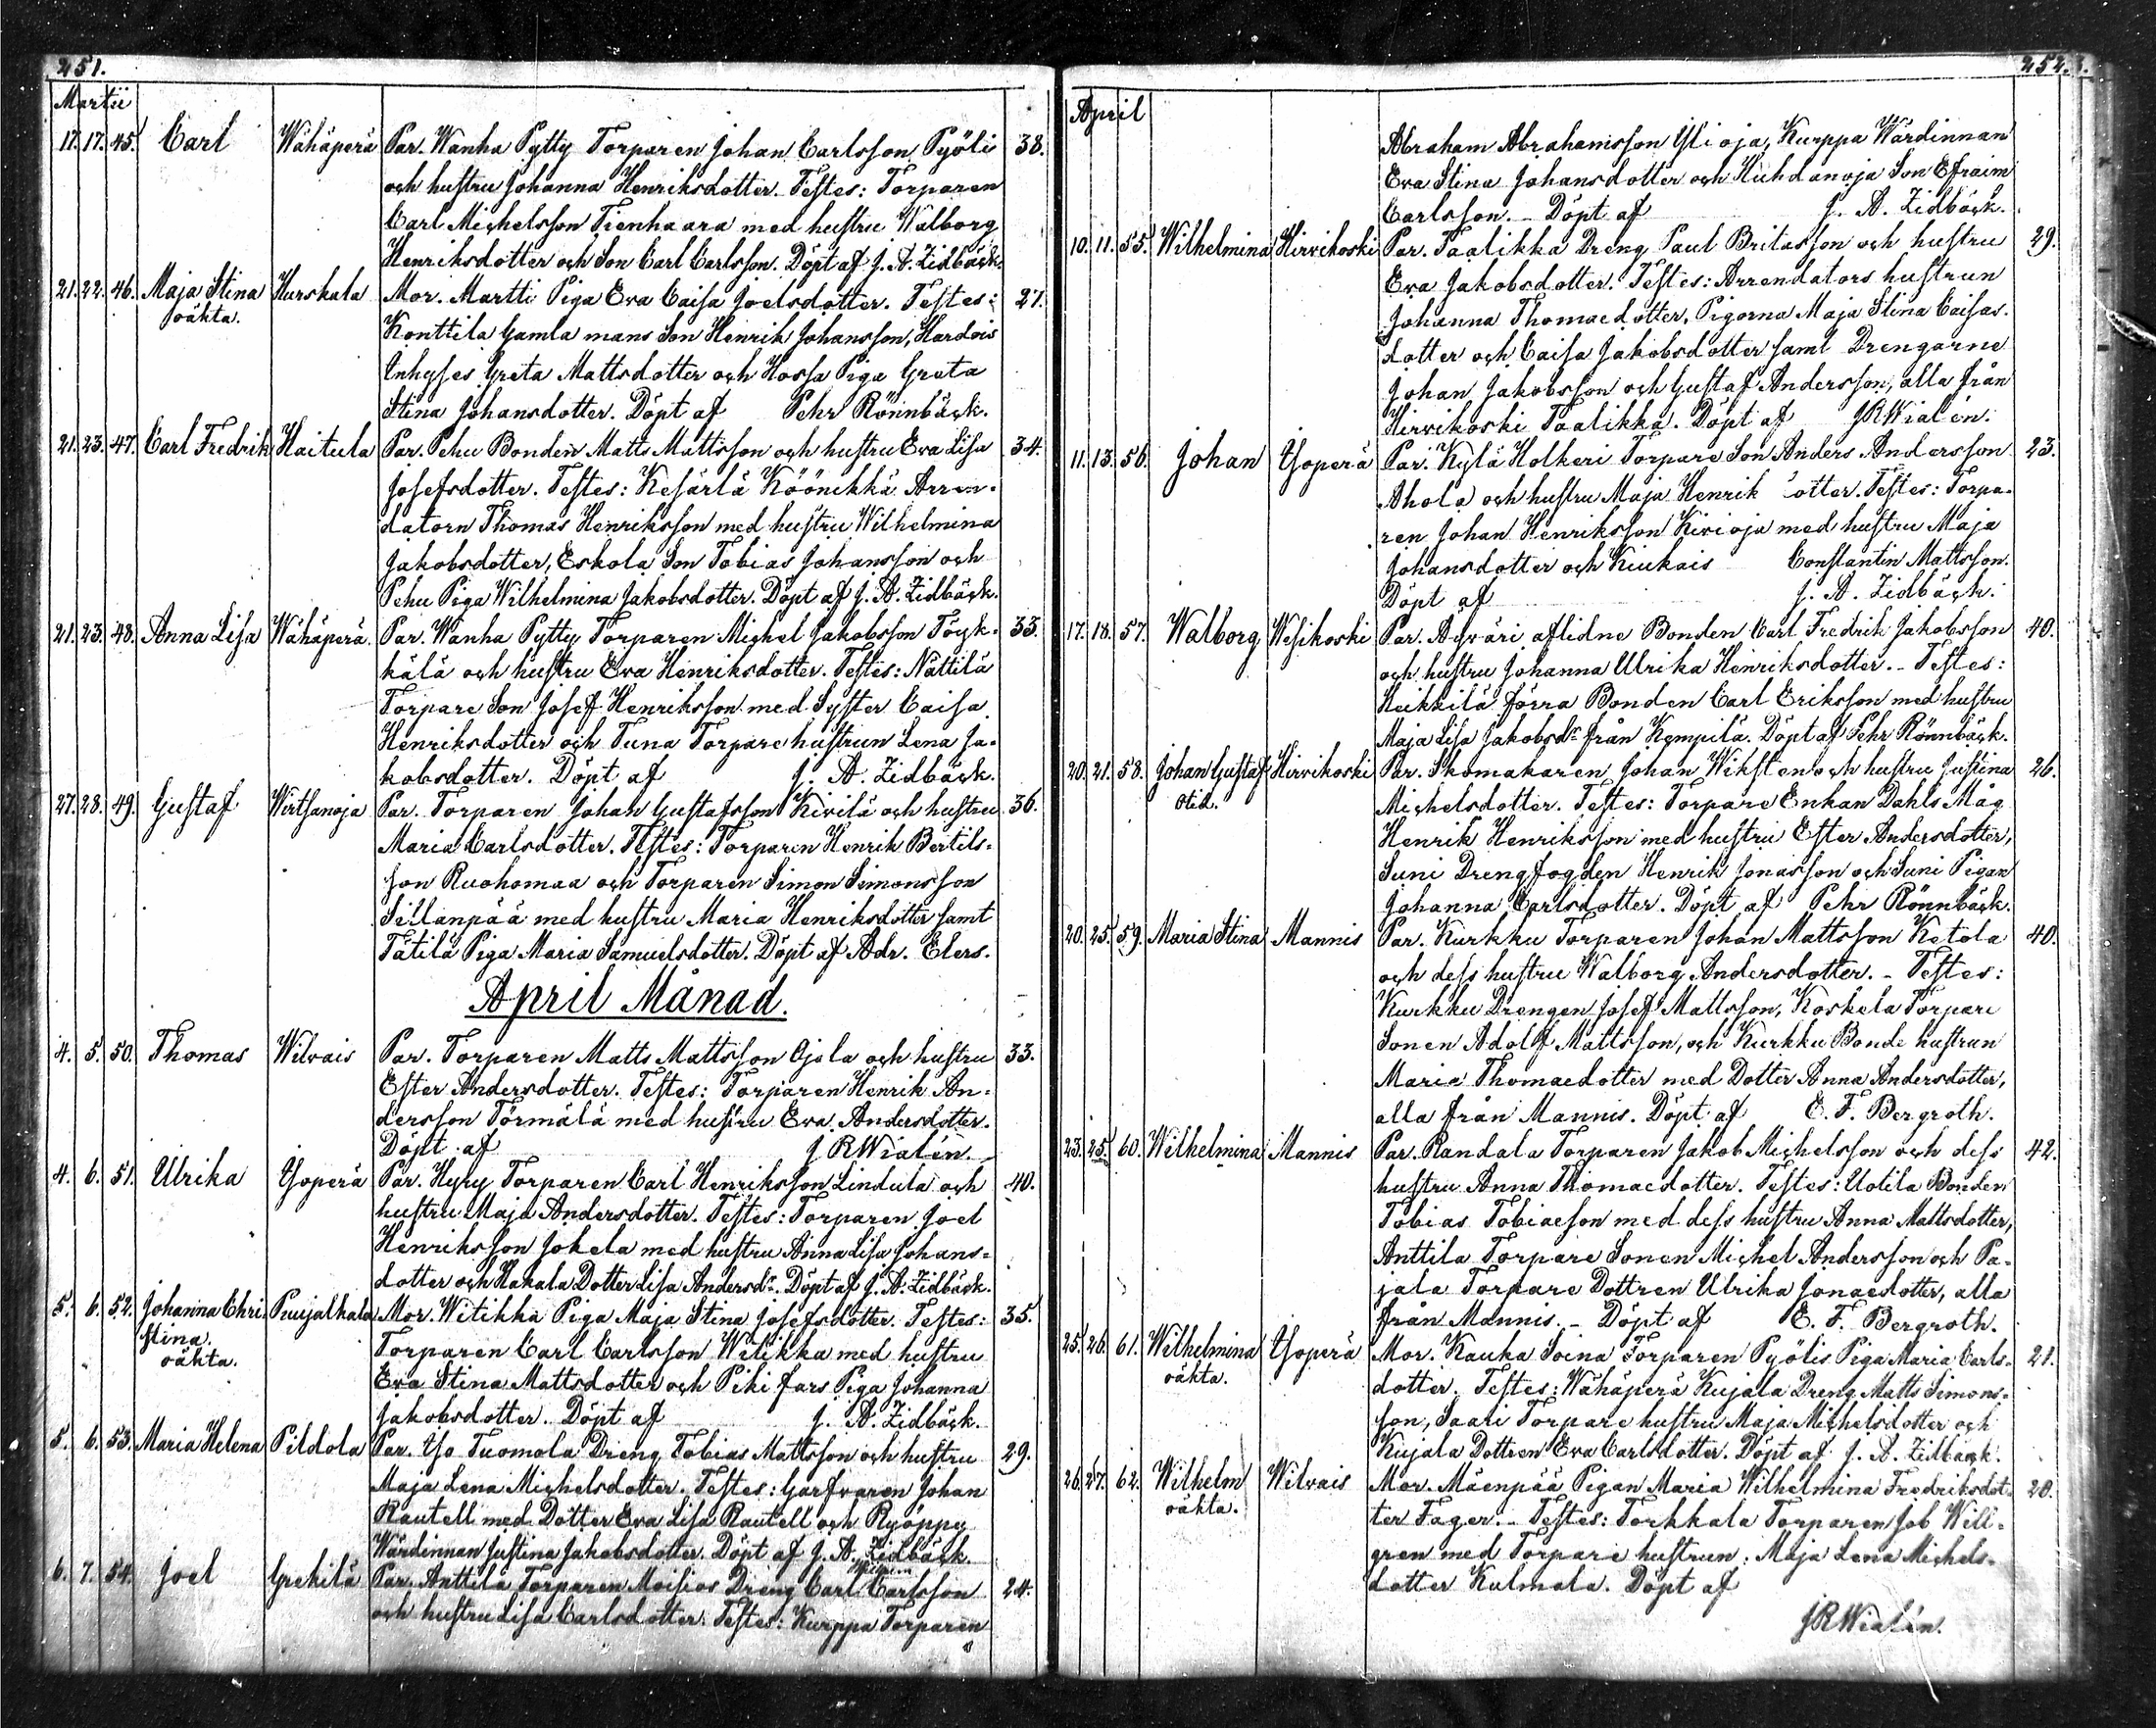 251.
Martii
17. 17. 45. Carl Wähäperä Par. Wanha Pytty Torparen Johan Carlsson Pyöli 38.
och hustru Johanna Henriksdotter. Testes: Torparen
Carl Michelsson Tienhaara med hustru Walborg
Henriksdotter och Son Carl Carlsson. Döpt af J. A. Zidbäck.
21. 22. 46. Maja Stina Hurskala Mor. Martti Piga Eva Caisa Joelsdotter. Testes: 27.
oäkta. Konttila Gamla mans Son Henrik Johansson, Hardois
Inhyses Greta Mattsdotter och Hossa Piga Greta
Stina Johansdotter. Döpt af Pehr Rönnbäck.
21. 23. 47. Carl Fredrik Haitula Par. Pehu Bonden Matts Mattsson och hustru Eva Lisa 34.
Josefsdotter. Testes: Kesärlä Köönikkä Arren-
datorn Thomas Henriksson med hustru Wilhelmina
Jakobsdotter, Eskola Son Tobias Johansson och
Pehu Piga Wilhelmina Jakobsdotter. Döpt af J. A. Zidbäck.
21. 23. 48. Anna Lisa Wähäperä. Par. Wanha Pytty Torparen Michel Jakobsson Töyk- 33.
kälä och hustru Eva Henriksdotter. Testes: Nättilä
Torpare Son Josef Henriksson med Syster Caisa
Henriksdotter och Tuna Torpare hustrun Lena Ja-
kobsdotter. Döpt af J. A. Zidbäck.
27. 28. 49. Gustaf Wirtsanoja Par. Torparen Johan Gustafsson Kivilä och hustru 36.
Maria Carlsdotter. Testes: Torparen Henrik Bertils-
son Ruohomaa och Torparen Simon Simonsson
Sillanpää med hustru Maria Henriksdotter samt
Tätilä Piga Maria Samuelsdotter. Döpt af Adr. Elers.
April Månad.
4. 5. 50. Thomas Wilvais Par. Torparen Matts Mattsson Ojala och hustru 33.
Ester Andersdotter. Testes: Torparen Henrik An-
dersson Törmälä med hustru Eva Andersdotter.
Döpt af J R Wialén.
4. 6. 51. Ulrika Ysoperä Par. Hyry Torparen Carl Henriksson Lindula och 40.
hustru Maja Andersdotter. Testes: Torparen Joel
Henriksson Jokela med hustru Anna Lisa Johans-
dotter och Hakala Dotter Lisa Andersdr. Döpt af J. A. Zidbäck.
5. 6. 52. Johanna Chri- Puujalkala Mor. Witikka Piga Maja Stina Josefsdotter. Testes: 35.
stina. Torparen Carl Carlsson Witikka med hustru
oäkta. Eva Stina Mattsdotter och Piki fars Piga Johanna
Jakobsdotter. Döpt af J. A. Zidbäck.
5. 6. 53. Maria Helena Pildola Par. Yso Tuomola Dreng Tobias Mattsson och hustru 29.
Maja Lena Michelsdotter. Testes: Garfvaren Johan
Rautell med Dotter Eva Lisa Rautell och Ryöppy
Wärdinnan Justina Jakobsdotter. Döpt af J. A. Zidbäck.
6. 7. 54. Joel Grekilä Par. Anttila Torparen Moisios Dreng Carl Carlsson 24.
och hustru Lisa Carlsdotter. Testes: Kurppa Torparen
252.
April
Abraham Abrahamsson Yli oja, Kurppa Wärdinnan
Eva Stina Johansdotter och Huhdanoja Son Efraim
Carlsson. - Döpt af J. A. Zidbäck.
10. 11. 55. Wilhelmina Hirvikoski Par. Taalikka Dreng Paul Britasson och hustru 29.
Eva Jakobsdotter. Testes: Arrendators hustrun
Johanna Thomaedotter, Pigorna Maja Stina Caisas-
dotter och Caisa Jakobsdotter samt Drengarne
Johan Jakobsson och Gustaf Andersson, alla från
Hirvikoski Taalikka. Döpt af J R Wialén.
11. 13. 56. Johan Ysoperä Par. Kylä Holkeri Torpare Son Anders Andersson 23.
Ahola och hustru Maja Henrik otter. Testes: Torpa-
ren Johan Henriksson Kivioja med hustru Maja
Johansdotter och Kiukais Constantin Mattsson.
Döpt af J. A. Zidbäck.
17. 18. 57. Walborg Wesikoski Par. Äyväri aflidne Bonden Carl Fredrik Jakobsson 40.
och hustru Johanna Ulrika Henriksdotter. - Testes:
Heikkilä förra Bonden Carl Eriksson med hustru
Maja Lisa Jakobsdr från Kempilä. Döpt af Pehr Rönnbäck.
20. 21. 58. Johan Gustaf Hirvikoski Par. Skomakaren Johan Wiksten och hustru Justina 26.
Michelsdotter. Testes: Torpare Enkan Dahls Måg
Henrik Henriksson med hustru Ester Andersdotter,
Suni Drengfogden Henrik Jonasson och Suni Pigan
Johanna Carlsdotter. Döpt af Pehr Rönnbäck.
20. 25. 59. Maria Stina Mannis Par. Kurkku Torparen Johan Mattsson Ketola 40.
och dess hustru Walborg Andersdotter. - Testes:
Kurkku Drengen Josef Mattsson, Koskela Torpare
Sonen Adolf Mattsson, och Kurkku Bonde hustrun
Maria Thomaedotter med Dotter Anna Andersdotter,
alla från Mannis. Döpt af E. F. Bergroth.
23. 25. 60. Wilhelmina Mannis Par. Randala Torparen Jakob Michelsson och dess 42.
hustru Anna Thomaedotter. Testes: Uotila Bonden
Tobias Tobiaeson med dess hustru Anna Mattsdotter,
Anttila Torpare Sonen Michel Andersson och Pa-
jala Torpare Dottren Ulrika Jonaedotter, alla
från Mannis. - Döpt af E. F. Bergroth.
25. 26. 61. Wilhelmina Ysoperä Mor. Kauka Soina Torparen Pyölis Piga Maria Carls- 21.
oäkta. dotter. Testes: Wähäperä Kujala Dreng Matts Simons-
son, Saari Torpare hustru Maja Michelsdotter och
Kujala Dottren Eva Carlsdotter. Döpt af J. A. Zidbäck.
26. 27. 62. Wilhelm Wilvais Mor. Mäenpää Pigan Maria Wilhelmina Fredriksdot- 20.
oäkta. ter Fager. - Testes: Torkkala Torparen Job Will-
gren med Torpare hustrun Maja Lena Michels-
dotter Kulmala. Döpt af
J R Wialén.